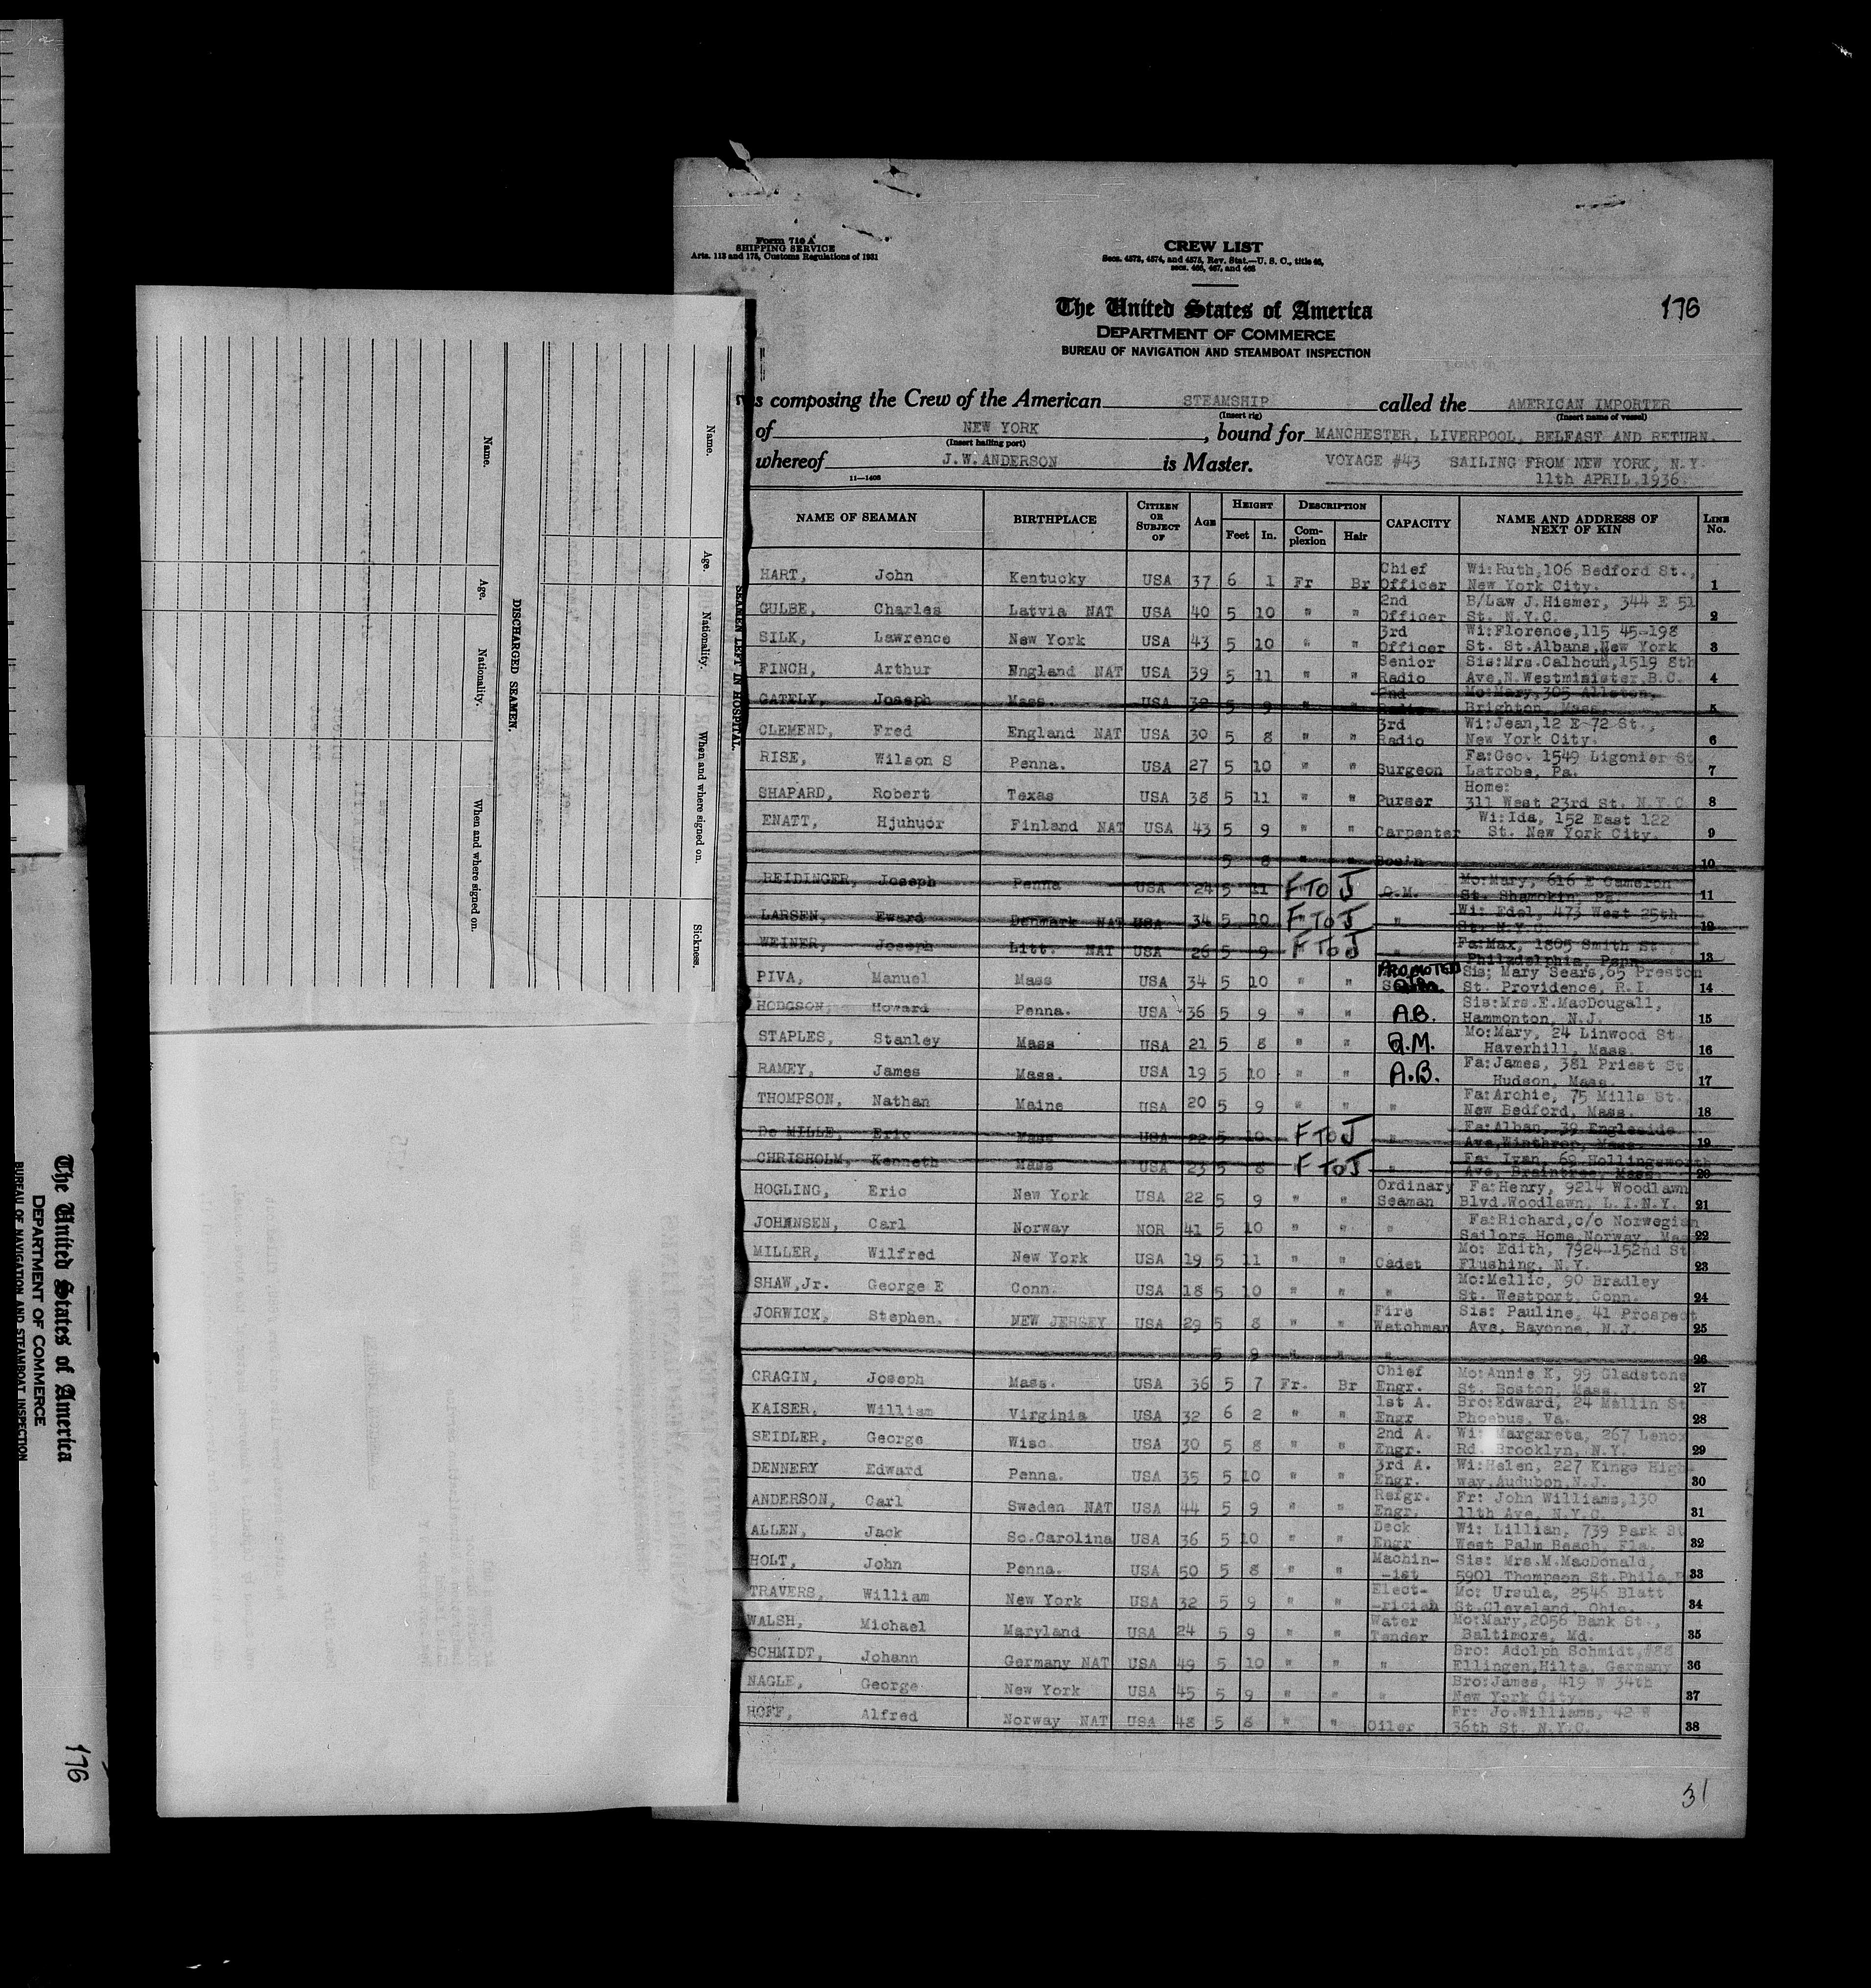 Form 710 A
SHIPPING SERVICE
Arts. 113 and 175, Customs Regulations of 1931
CREW LIST
Secs. 4573, 4574, and 4575, Rev. Stat.—U. S. C., title 46,
secs. 466, 467, and 468
The United States of America
DEPARTMENT OF COMMERCE
BUREAU OF NAVIGATION AND STEAMBOAT INSPECTION
176
s composing the Crew of the American STEAMSHIP called the AMERICAN IMPORTER
(Insert rig) (Insert name of vessel)
of NEW YORK, bound for MANCHESTER LIVERPOOL, BELFAST AND RETURN
(Insert hailing port)
whereof J.W.ANDERSON is Master. VOYAGE #43 SAILING FROM NEW YORK, N.Y.
11—1406 11th APRIL,1936
NAME OF SEAMAN BIRTHPLACE CITIZEN OR SUBJECT OF AGE HEIGHT Feet In. DESCRIPTION Complexion Hair CAPACITY NAME AND ADDRESS OF NEXT OF KIN LINE No.
HART, John Kentucky USA 37 6 1 Fr Br Chief Officer Wi:Ruth,106 Bedford St., New York City. 1
GULBE, Charles Latvia NAT USA 40 5 10 " " 2nd Officer B/Law J.Hismer, 344 E 51 St. N.Y.C. 2
SILK, Lawrence New York USA 43 5 10 " " 3rd Officer Wi:Florence,115 45-198 St. St.Albans,New York 3
FINCH, Arthur England NAT USA 39 5 11 " " Senior Radio Sis:Mrs.Calhoun,1519 8th Ave,N.Westminister,B.C. 4
GATELY, Joseph Mass. USA 32 5 9 " " 2nd Radio Mo:Mary,305 Allston, Brighton, Mass. 5
CLEMEND, Fred England NAT USA 30 5 8 " " 3rd Radio Wi:Jean,12 E-72 St., New York City. 6
RISE, Wilson S Penna. USA 27 5 10 " " Surgeon Fa:Geo. 1549 Ligonier St Latrobe, Pa. 7
SHAPARD, Robert Texas USA 38 5 11 " " Purser Home: 311 West 23rd St. N.Y.C 8
ENATT, Hjuhuor Finland NAT USA 43 5 9 " " Carpenter Wi:Ida, 152 East 122 St. New York City. 9
5 8 " " Bos'n 10
REIDINGER, Joseph Penna USA 24 5 11 F TO J Q.M. Mo:Mary, 616 E Cameron St. Shamokin, Pa. 11
LARSEN, Eward Denmark NAT USA 34 5 10 F TO J " Wi: Edel, 473 West 25th St. N.Y.C. 12
WEINER, Joseph Litt. NAT USA 26 5 9 F TO J " Fa:Max, 1805 Smith St. Philadelphia, Penn 13
PIVA, Manuel Mass USA 34 5 10 " " PROMOTED Sis; Mary Sears,65 Preston St. Providence, R.I. 14
HODGSON, Howard Penna. USA 36 5 9 " " A.B. Sis:Mrs.E.MacDougall, Hammonton, N.J. 15
STAPLES, Stanley Mass USA 21 5 8 " " Q.M. Mo:Mary, 24 Linwood St. Haverhill, Mass. 16
RAMEY, James Mass. USA 19 5 10 " " A.B. Fa:James, 381 Priest St Hudson, Mass. 17
THOMPSON, Nathan Maine USA 20 5 9 " " " Fa:Archie, 75 Mills St. New Bedford, Mass. 18
De MILLE, Eric Mass USA 22 5 10 F TO J " Fa:Alban, 39 Engleside Ave,Winthrop, Mass. 19
CHRISHOLM, Kenneth Mass USA 23 5 8 F TO J " Fa: Ivan, 69 Hollingsworth Ave, Braintree, Mass. 20
HOGLING, Eric New York USA 22 5 9 " " Ordinary Seaman Fa:Henry, 9214 Woodlawn Blvd.Woodlawn, L.I.N.Y. 21
JOHNNSEN, Carl Norway NOR 41 5 10 " " " Fa:Richard,c/o Norwegian Sailors Home,Norway, Mass 22
MILLER, Wilfred New York USA 19 5 11 " " Cadet Mo: Edith, 7924-152nd St Flushing, N.Y. 23
SHAW,Jr. George E Conn. USA 18 5 10 " " " Mo:Mellic, 90 Bradley St. Westport, Conn. 24
JORWICK, Stephen, NEW JERSEY USA 29 5 8 " " Fire Watchman Sis: Pauline, 41 Prospect Ave, Bayonne, N.J. 25
5 9 " " " 26
CRAGIN, Joseph Mass. USA 36 5 7 Fr. Br Chief Engr. Mo:Annie K, 99 Gladstone St. Boston, Mass. 27
KAISER, William Virginia USA 32 6 2 " " 1st A. Engr Bro:Edward, 24 Mellin St Phoebus, Va. 28
SEIDLER, George Wisc. USA 30 5 8 " " 2nd A. Engr. Wi: Margareta, 267 Lenox Rd. Brooklyn, N.Y. 29
DENNERY Edward Penna. USA 35 5 10 " " 3rd A. Engr. Wi:Helen, 227 Kings High- way,Audubon,N.J. 30
ANDERSON, Carl Sweden NAT USA 44 5 9 " " Refgr. Engr. Fr: John Williams,130 11th Ave, N.Y.C. 31
ALLEN, Jack So.Carolina USA 36 5 10 " " Deck Engr Wi: Lillian, 739 Park St West Palm Beach, Fla. 32
HOLT, John Penna. USA 50 5 8 " " Machin- -ist Sis: Mrs.M.MacDonald, 5901 Thompson St.Phila,P 33
TRAVERS, William New York USA 32 5 9 " " Elect- -rician Mo: Ursula, 2546 Blatt St.Cleveland, Ohio. 34
WALSH, Michael Maryland USA 24 5 9 " " Water Tender Mo:Mary,2056 Bank St., Baltimore, Md. 35
SCHMIDT, Johann Germany NAT USA 49 5 10 " " " Bro: Adolph Schmidt,#88 Ellingen,Hilts, Germany 36
NAGLE, George New York USA 45 5 9 " " " Bro:James, 419 W 34th New York City. 37
HOFF, Alfred Norway NAT USA 48 5 8 " " Oiler Fr: Jo.Williams, 42 W 36th St. N.Y.C. 38
31
SEAMEN LEFT IN HOSPITAL.
Name. Age. Nationality. When and where signed on. Sickness.
DISCHARGED SEAMEN.
Name. Age. Nationality. When and where signed on.
The United States of America
DEPARTMENT OF COMMERCE
BUREAU OF NAVIGATION AND STEAMBOAT INSPECTION
176